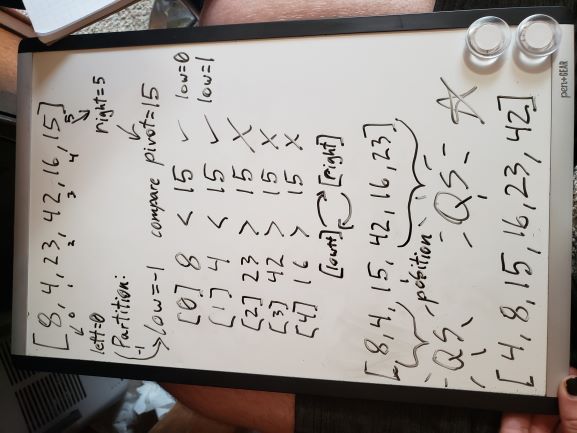 [8, 4, 23, 42, 16, 15]
0 1 2 3 4 5
left=0 right=5
Partition:
-1
low=-1 compare pivot=15
[0] 8 < 15 ✓ low=0
[1] 4 < 15 ✓ low=1
[2] 23 > 15 X
[3] 42 > 15 X
[4] 16 > 15 X
[low++] [right]
[8, 4, 15, 42, 16, 23]
position
QS QS
[4, 8, 15, 16, 23, 42]
pen+GEAR